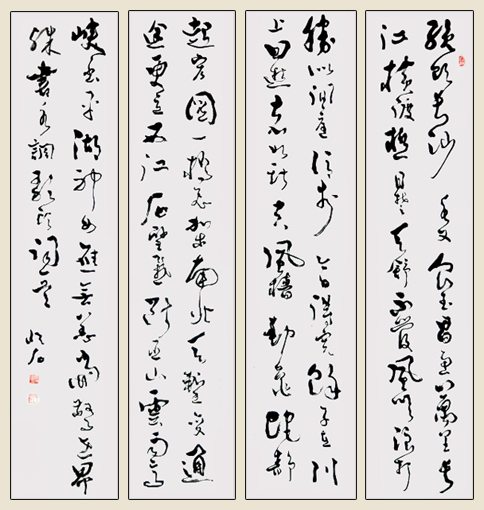 才飲長沙水又食武昌魚萬里長
江橫渡極目楚天舒不管風吹浪打
勝似閒庭信步今日得寬餘子在川
上曰逝者如斯夫風檣動龜蛇靜
起宏圖一橋飛架南北天塹變通
途更立西江石壁截斷巫山雲雨高
峽出平湖神女應無恙當驚世界
殊書水調歌頭詞一首